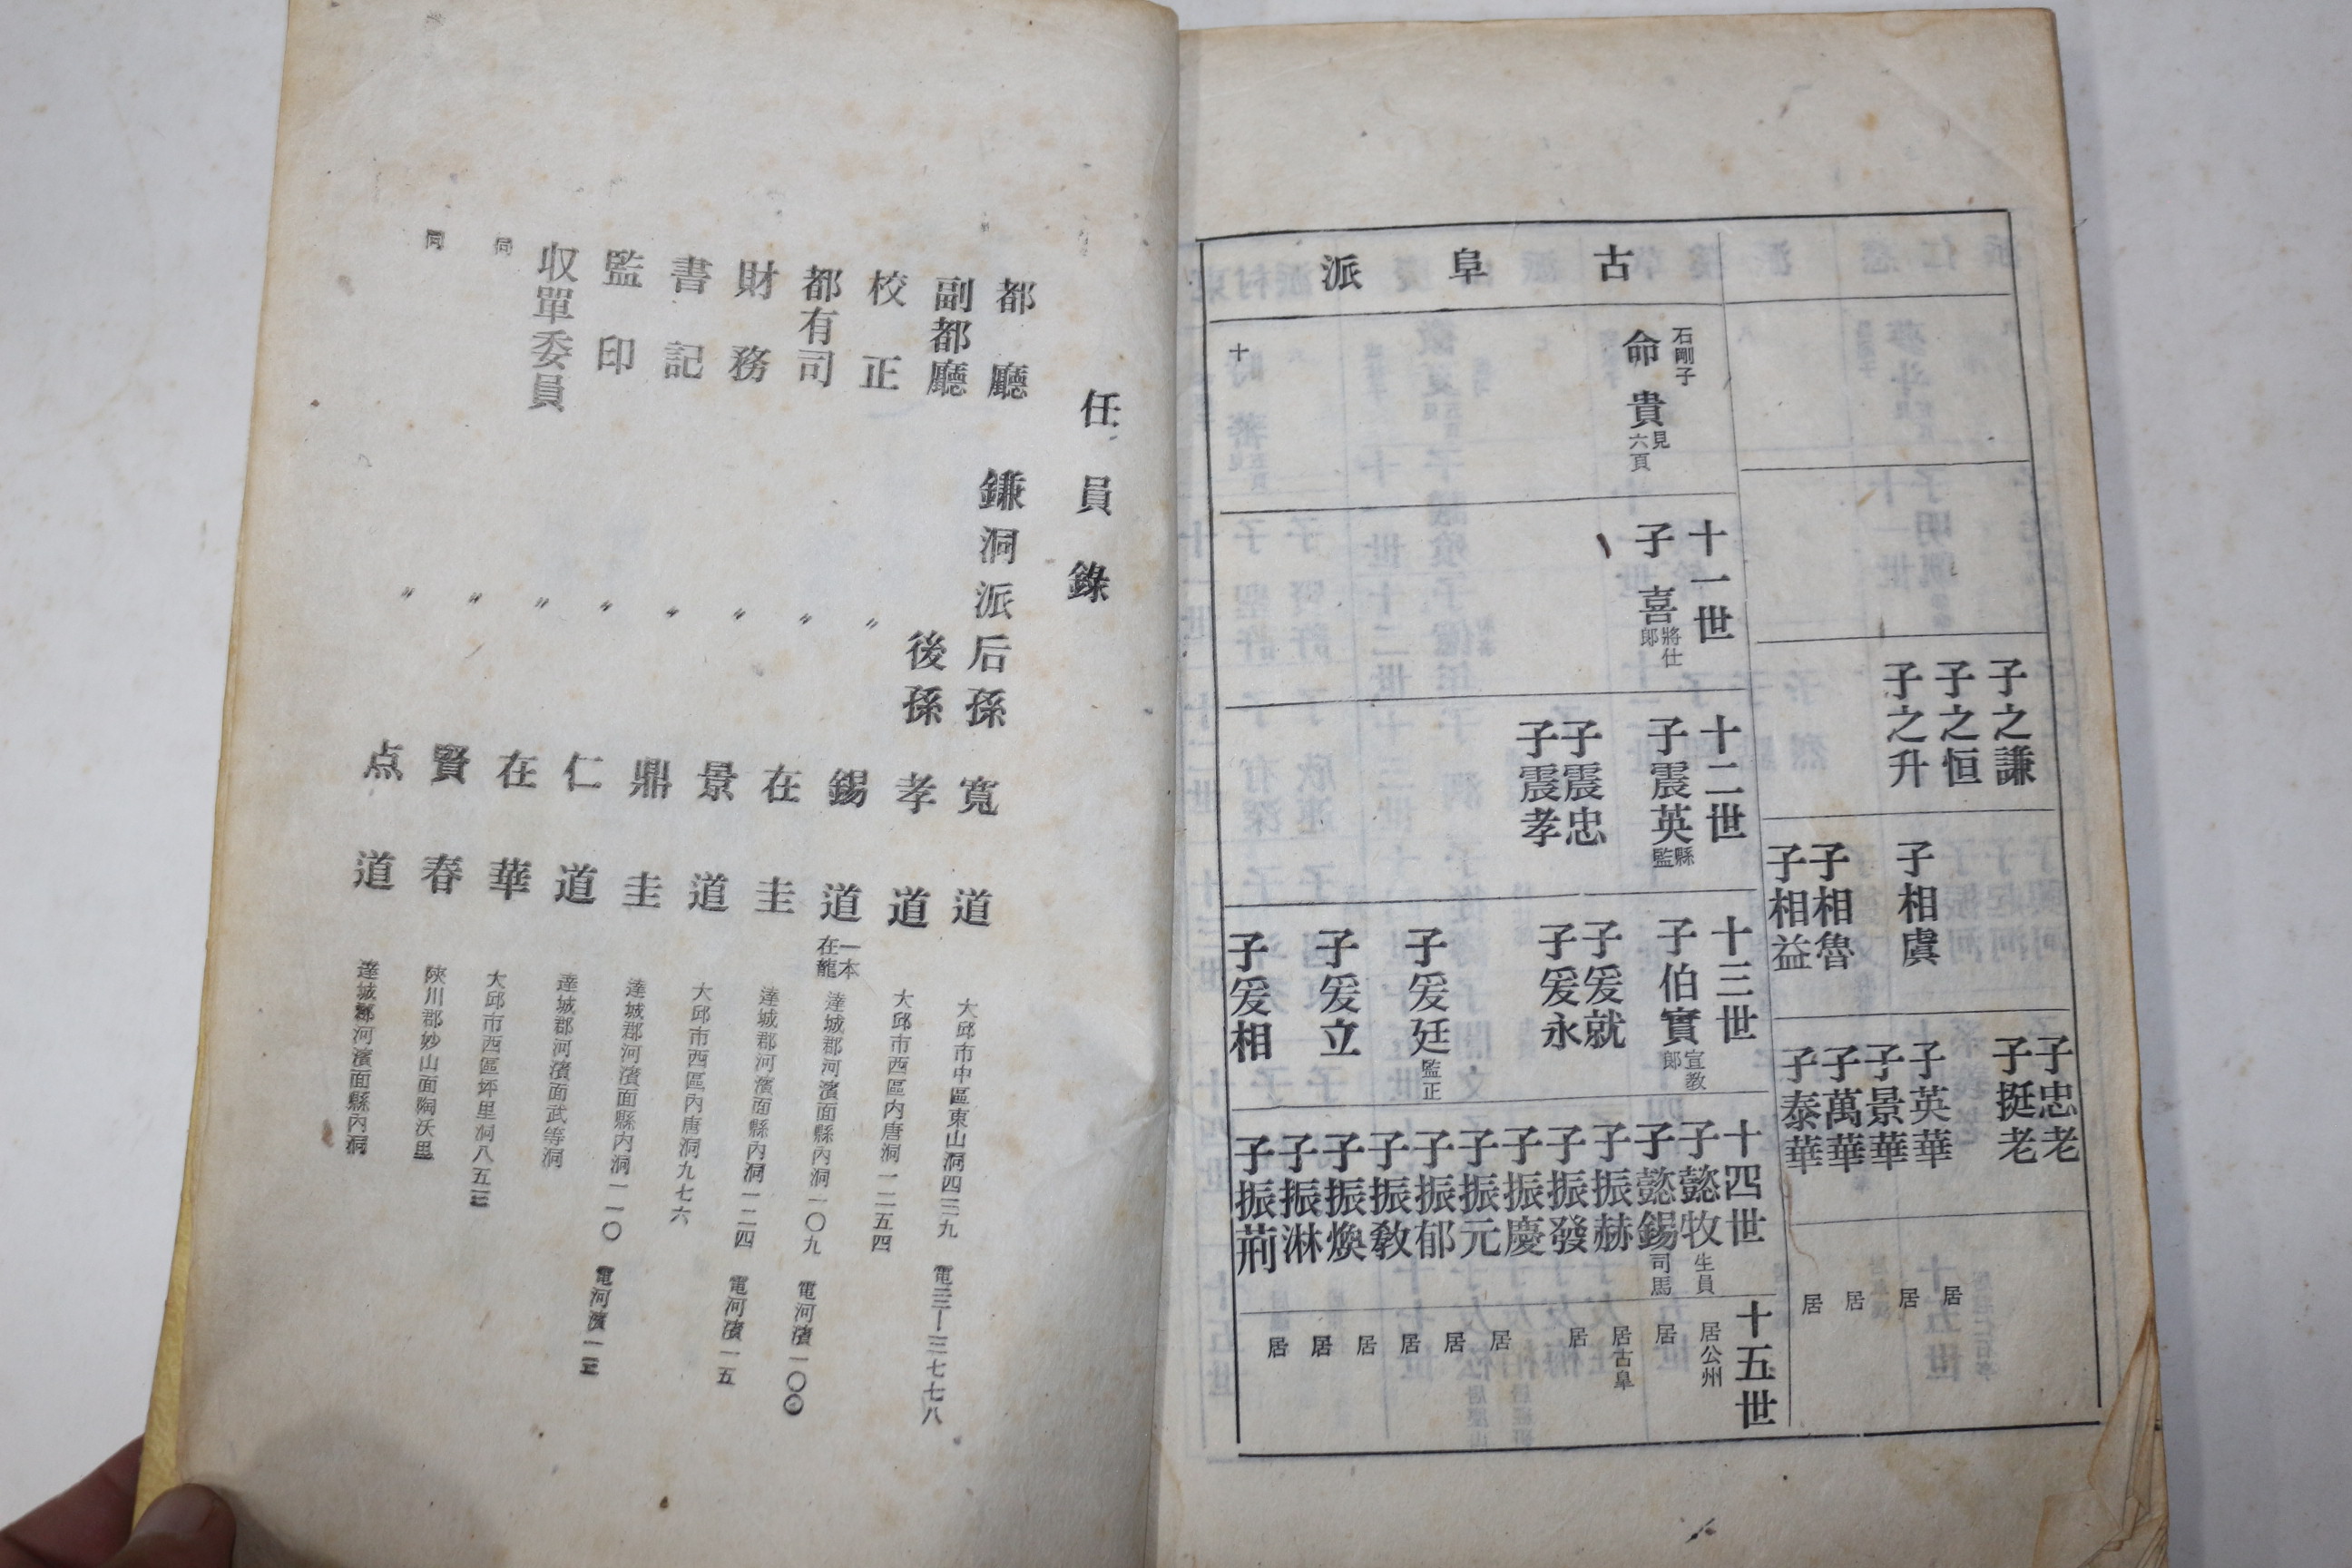 古阜派
石剛子
命貴 見六頁
十
十一世
子喜 將仕郎
十二世
子震英 縣監
子震忠
子震孝
十三世
子伯實 宣教郎
子爰就
子爰永
子爰廷 監正
子爰立
子爰相
十四世
子懿牧 生員
子懿錫 司馬
子振赫
子振發
子振慶
子振元
子振郁
子振教
子振煥
子振淋
子振荊
十五世
居公州
居
居古阜
居
居
居
居
居
居
居
子之謙
子之恒
子之升
子相虞
子相魯
子相益
子忠老
子挺老
子英華
子景華
子萬華
子泰華
居
居
居
居
任員錄
都廳 鎌洞派后孫 寬道 大邱市中區東山洞四三九 電三ー三七七八
副都廳 後孫 孝道 大邱市西區內唐洞一二五四
校正 〃 錫道 一本在龍 達城郡河濱面縣內洞一〇九 電河濱一〇〇
都有司 〃 在圭 達城郡河濱面縣內洞一二四 電河濱一五
財務 〃 景道 大邱市西區內唐洞九七六
書記 〃 鼎圭 達城郡河濱面縣內洞一一〇 電河濱一三
監印 〃 仁道 達城郡河濱面武等洞
収單委員 〃 在華 大邱市西區坪里洞八五三
同 〃 賢春 陜川郡妙山面陶沃里
同 〃 点道 達城郡河濱面縣內洞